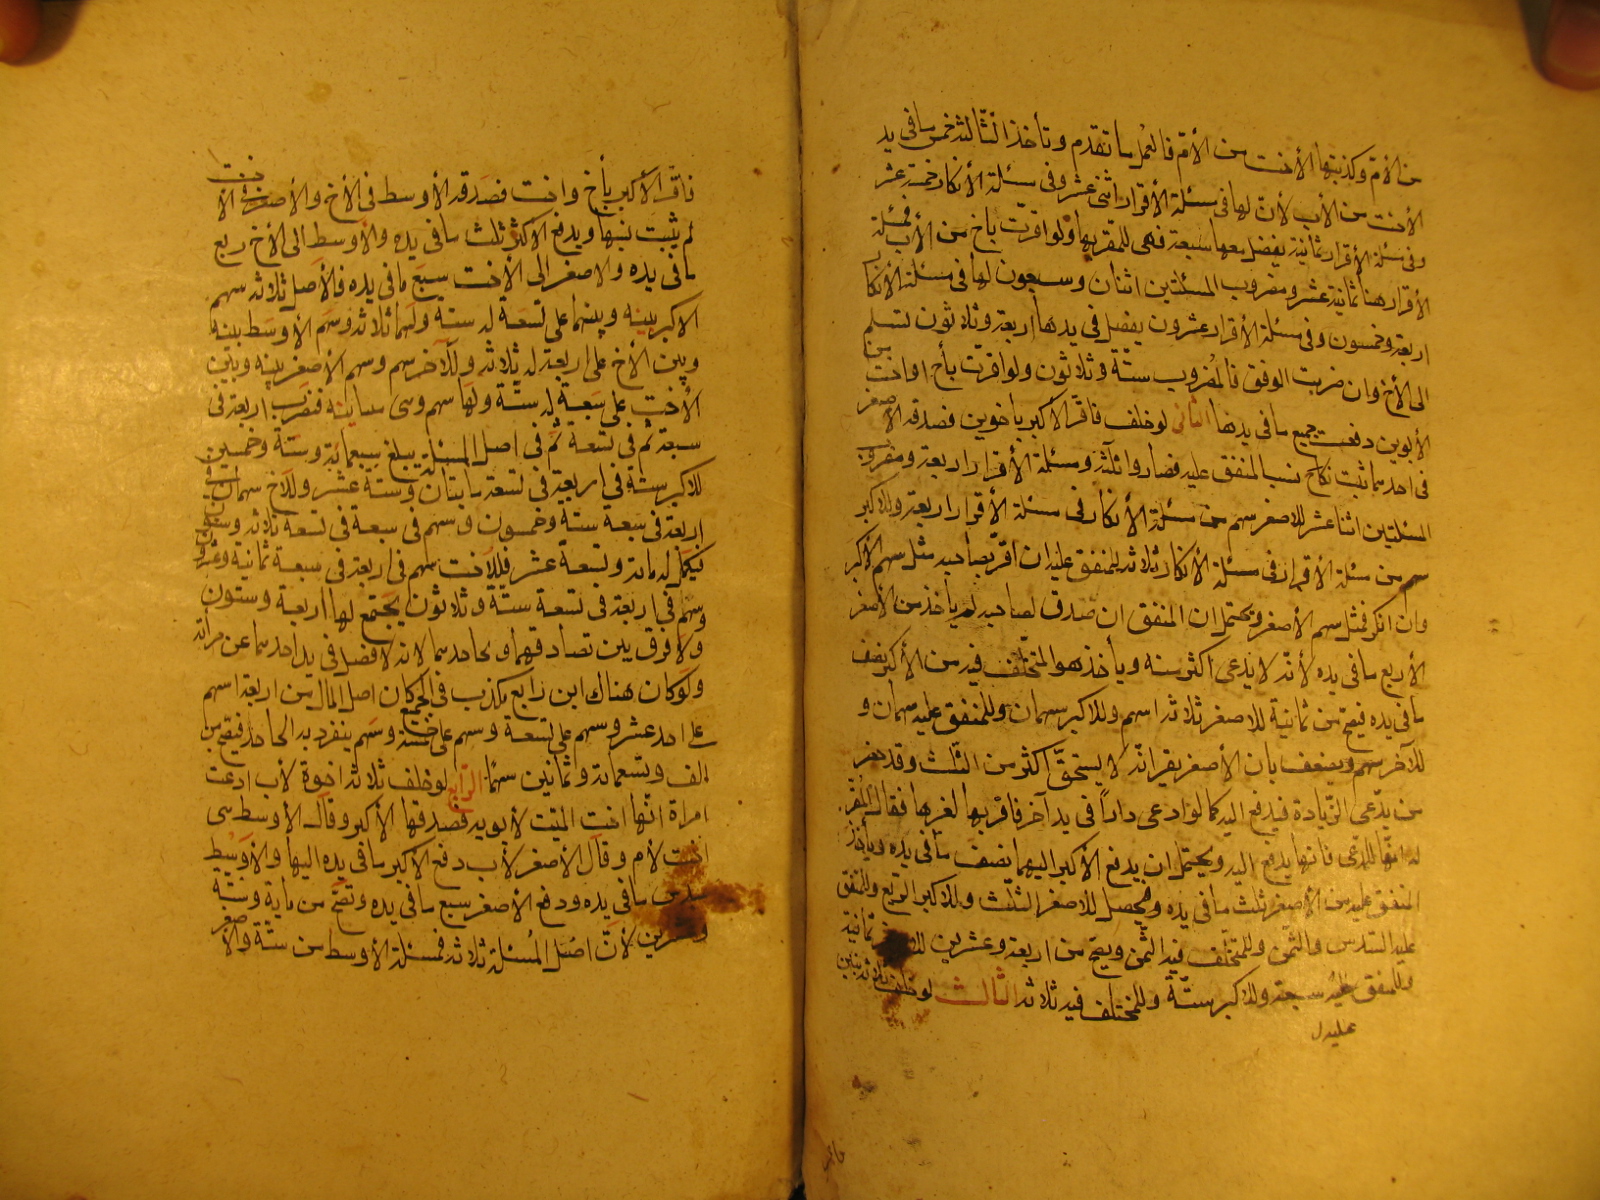 من الام وكذبتها الأخت من الأم فالعمل ما تقدم وتأخذ الثالثة خمس ما فى يد
الأخت من الأب لأن لها فى مسئلة الأقرار اثنى عشر وفى مسئلة الأنكار خمسة عشر
وفى مسئلة الأقرار ثمانية يفضل معها سبعة فهى للمقر بها ولو اقرت باخ من الأب فمسئلة
الأقرار هنا ثمانية عشر ومضروب المسئلتين اثنان وسبعون لها فى مسئلة الأنكار
اربعة وخمسون وفى مسئلة الأقرار عشرون يفضل فى يدها اربعة وثلاثون تسلم
الى الأخ وان ضربت الوفق فالمضروب ستة وثلاثون ولو اقرت بأخ او اخت من
الأبوين دفعت جميع ما فى يدها الثانى لو خلف فاقر الأكبر باخوين فصدقه الاصغر
فى احدهما ثبت نسب المتفق عليه فصاروا ثلثة ومسئلة الأقرار اربعة ومضروب
المسئلتين اثنا عشر للاصغر سهم من مسئلة الأنكار فى مسئلة الأقرار اربعة وللاكبر
سهم من مسئلة الأقرار فى مسئلة الأنكار ثلاثة للمتفق عليه ان اقر بصاحبه مثل سهم الأكبر
وان انكر فمثل سهم الأصغر ويحتمل ان المتفق ان صدق لصاحبه لم ياخذ من الأصغر
الأربع ما فى يده لأنه لا يدعى اكثر منه ويأخذ هو المختلف فيه من الأكبر نصف
ما فى يده فيصح من ثمانية للاصغر ثلاثة اسهم وللاكبر سهمان وللمتفق عليه سهمان و
للآخر سهم ويضعف بان الأصغر يقر انه لا يستحق اكثر من الثلث وقد حضر
من يدعى الزيادة فيدفع اليه كما لو ادعى داراً فى يد آخر فاقر بها لغيره فقال المقر
له انها للمدعى فانها يدفع اليه ويحتمل ان يدفع الأكبر اليهما نصف ما فى يده ويأخذ
المتفق عليه من الأصغر ثلث ما فى يده فيحصل للاصغر الثلث وللاكبر الربع وللمتفق
عليه السدس والثمن وللمختلف فيه الثمن ويصح من اربعة وعشرين ثمانية
وللمتفق عليه سبعة وللاكبر ستة وللمختلف فيه ثلاثة الثالث لو خلف ثلاثة بنين
فاقر الأكبر بأخ واخت فصدقه الأوسط فى الأخ والأصغر فى الاخت
لم يثبت نسبها ويدفع الاكبر ثلث ما فى يده والأوسط الى الأخ ربع
ما فى يده والاصغر الى الأخت سبع ما فى يده فالأصل ثلاثة سهم
الاكبر بينه وبينهما على تسعة له ستة ولهما ثلاثة وسهم الأوسط بينه
وبين الأخ على اربعة له ثلاثة وللآخر سهم وسهم الأصغر بينه وبين
الأخت على سبعة له ستة ولها سهم فتضرب اربعة فى
سبعة ثم فى تسعة ثم فى اصل المسئلة يبلغ سبعمائة وستة وخمسين
للاكبر ستة فى اربعة فى سبعة وستة وللاخ سهمان فى
اربعة فى سبعة ستة وخمسون وسهم فى سبعة فى تسعة ثلاثة وستون
فيكمل له مائة وتسعة عشر فللاخت سهم فى اربعة فى سبعة ثمانية وعشرون
وسهم فى اربعة فى تسعة ستة وثلاثون يجتمع لها اربعة وستون
ولا فرق بين تصادقهما وتجاحدهما لانه لا فضل فى يد احدهما عن ميراثه
ولو كان هناك ابن رابع مكذب فى الجميع كان اصل المال من اربعة اسهم
على احد عشر وسهم على تسعة وسهم على خمسة وسهم ينفرد به الجاحد فيصح من
الف وتسعمائة وثمانين سهما الرابع لو خلف ثلاثة اخوة لأب ادعت
امراة انها اخت الميت لأبويه فصدقها الأكبر وقال الأوسط هى
اخت لأم وقال الأصغر لأب دفع الأكبر ما فى يده اليها والاوسط
سدس ما فى يده ودفع الأصغر سبع ما فى يده وتصح من مائة وستة
وعشرين لأن اصل المسئلة ثلاثة فمسئلة الأوسط من ستة والاصغر